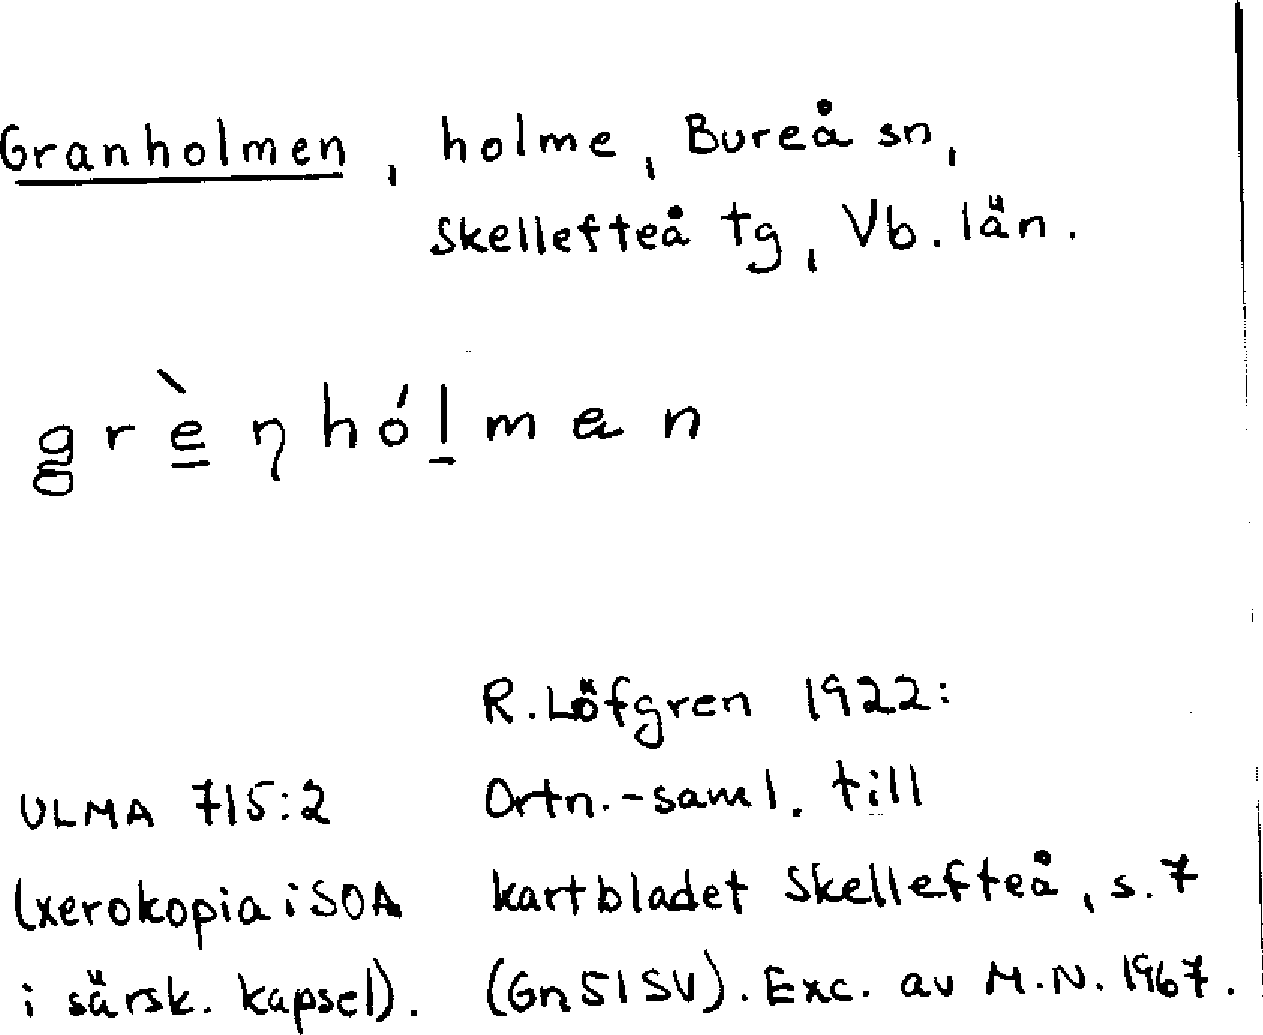 Granholmen, holme, Bureå sn,
Skellefteå tg, Vb. län.
grè̱ŋhól̠mɐn
R. Löfgren 1922:
Ortn.-saml. till
kartbladet Skellefteå, s. 7
(Gn 51 SV). Exc. av M.N. 1967.
ULMA 715:2
(xerokopia i SOA
i särsk. kapsel).